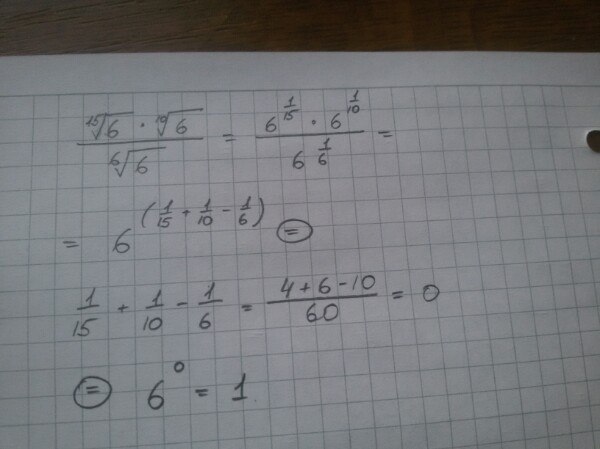 \frac{\sqrt[15]{6} \cdot \sqrt[10]{6}}{\sqrt[6]{6}} = \frac{6^{\frac{1}{15}} \cdot 6^{\frac{1}{10}}}{6^{\frac{1}{6}}} =
= 6^{(\frac{1}{15} + \frac{1}{10} - \frac{1}{6})} ⊜
\frac{1}{15} + \frac{1}{10} - \frac{1}{6} = \frac{4+6-10}{60} = 0
⊜ 6^{0} = 1